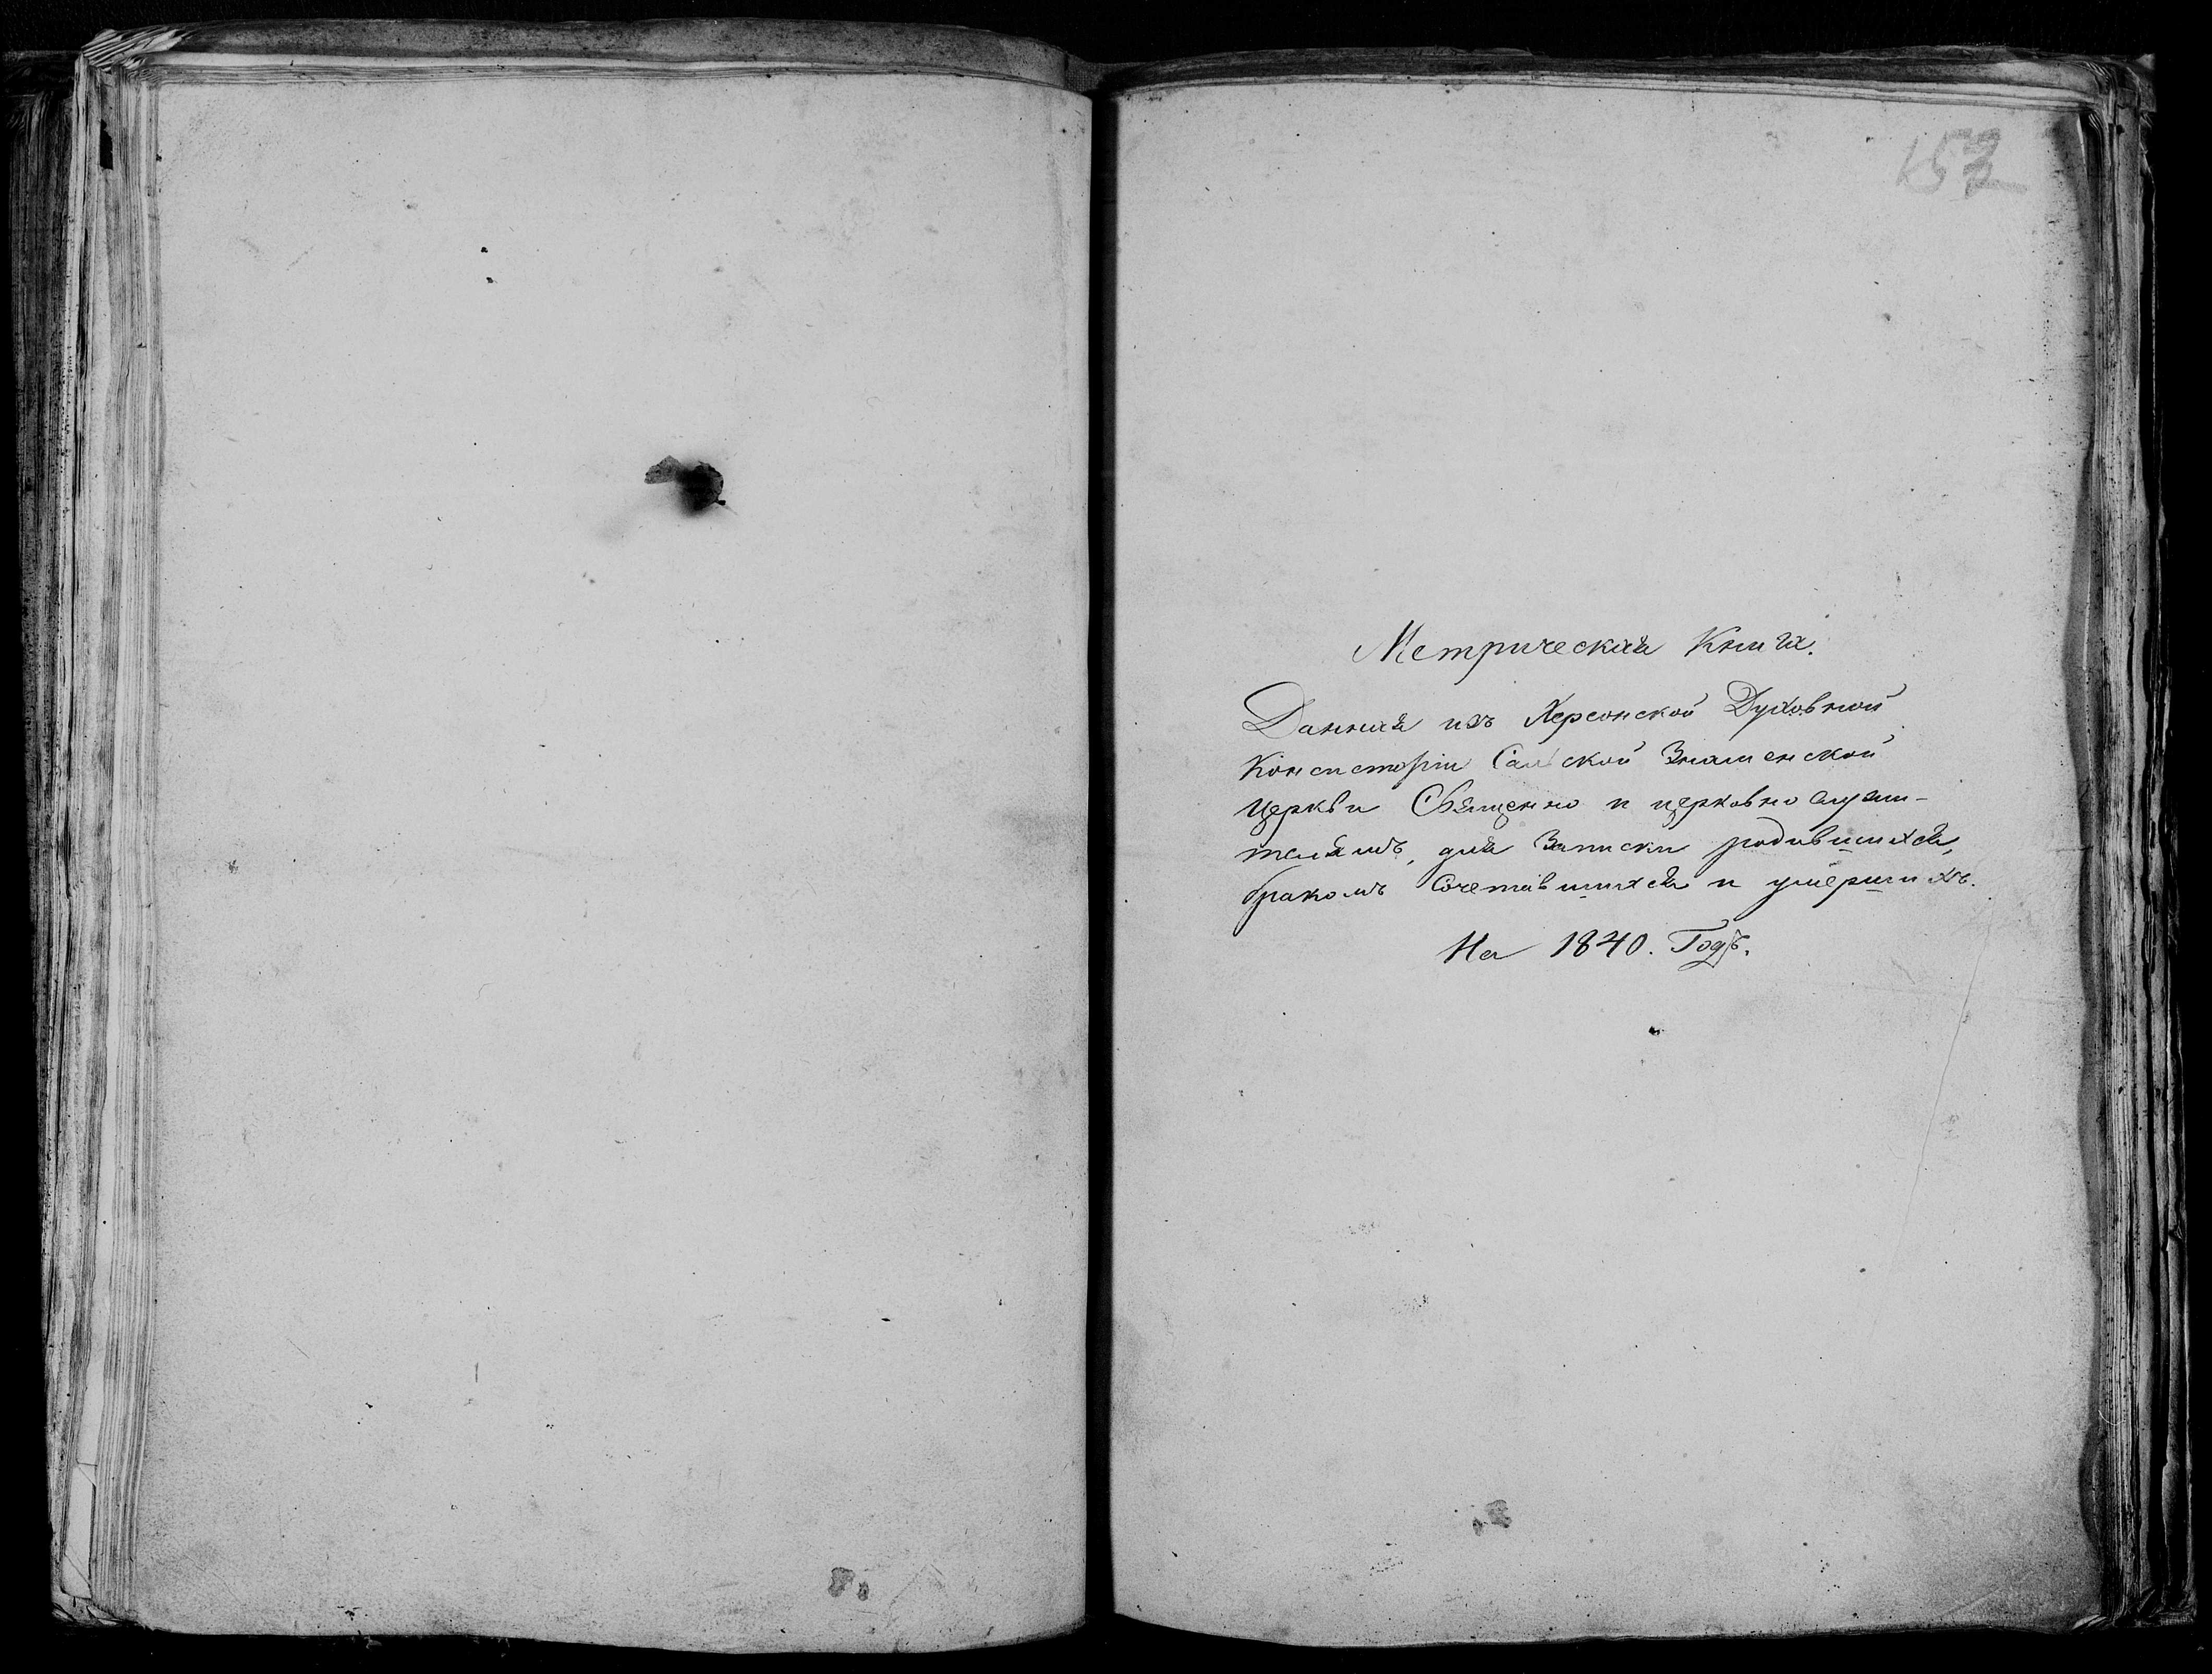 Метрическая Книга.
Данная изъ Херсонской Духовной
Консисторіи ской Знаменской
Церкви Священно и церковно служи-
телямъ, для Записки родившихся,
бракомъ Сочетавшихся и умершихъ.
На 1840. Годъ.